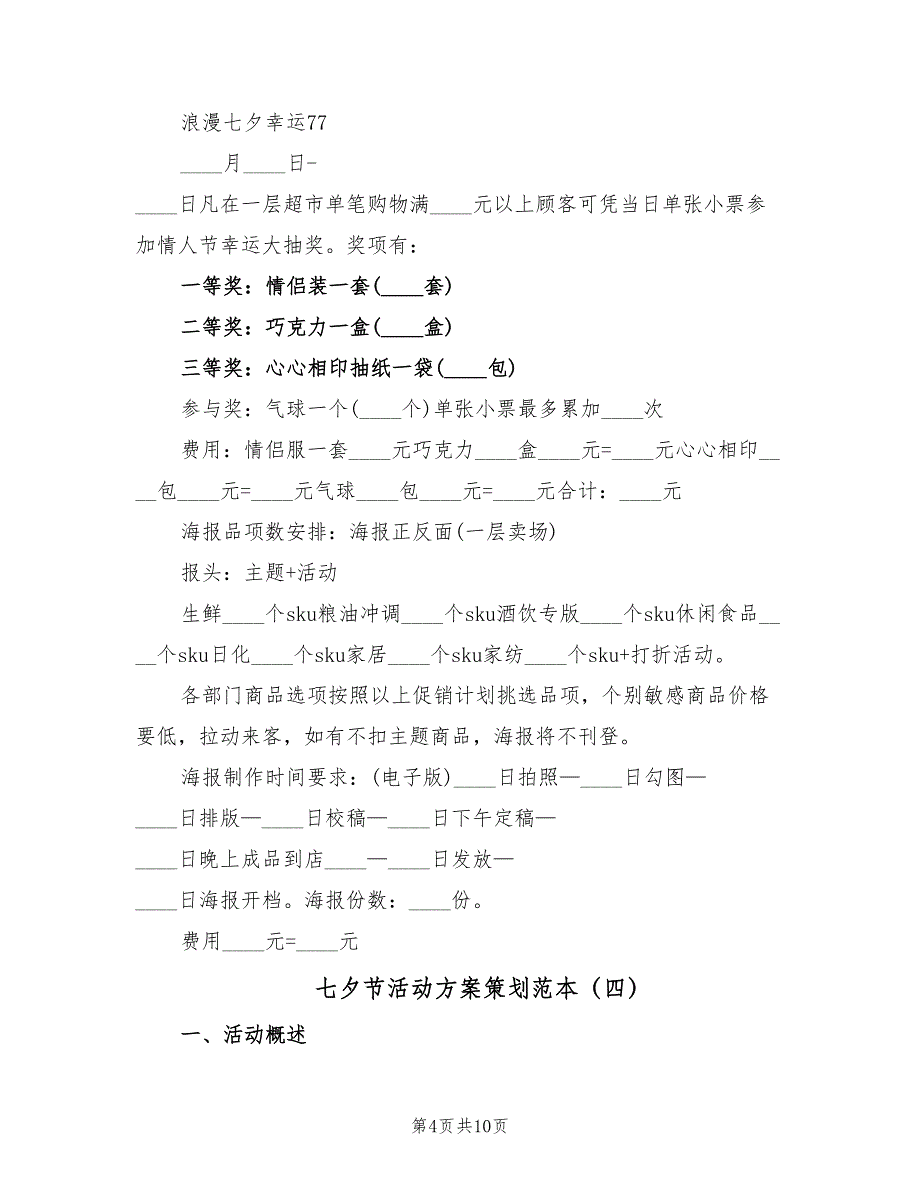 浪漫七夕幸运77
____月____日-
____日凡在一层超市单笔购物满____元以上顾客可凭当日单张小票参
加情人节幸运大抽奖。奖项有：
一等奖：情侣装一套(____套)
二等奖：巧克力一盒(____盒)
三等奖：心心相印抽纸一袋(____包)
参与奖：气球一个(____个)单张小票最多累加____次
费用：情侣服一套____元巧克力____盒____元=____元心心相印__
__包____元=____元气球____包____元=____元合计：____元
海报品项数安排：海报正反面(一层卖场)
报头：主题+活动
生鲜____个sku粮油冲调____个sku酒饮专版____个sku休闲食品__
__个sku日化____个sku家居____个sku家纺____个sku+打折活动。
各部门商品选项按照以上促销计划挑选品项，个别敏感商品价格
要低，拉动来客，如有不扣主题商品，海报将不刊登。
海报制作时间要求：(电子版)____日拍照—____日勾图—
____日排版—____日校稿—____日下午定稿—
____日晚上成品到店____—____日发放—
____日海报开档。海报份数：____份。
费用____元=____元
七夕节活动方案策划范本（四）
一、活动概述
第4页共10页